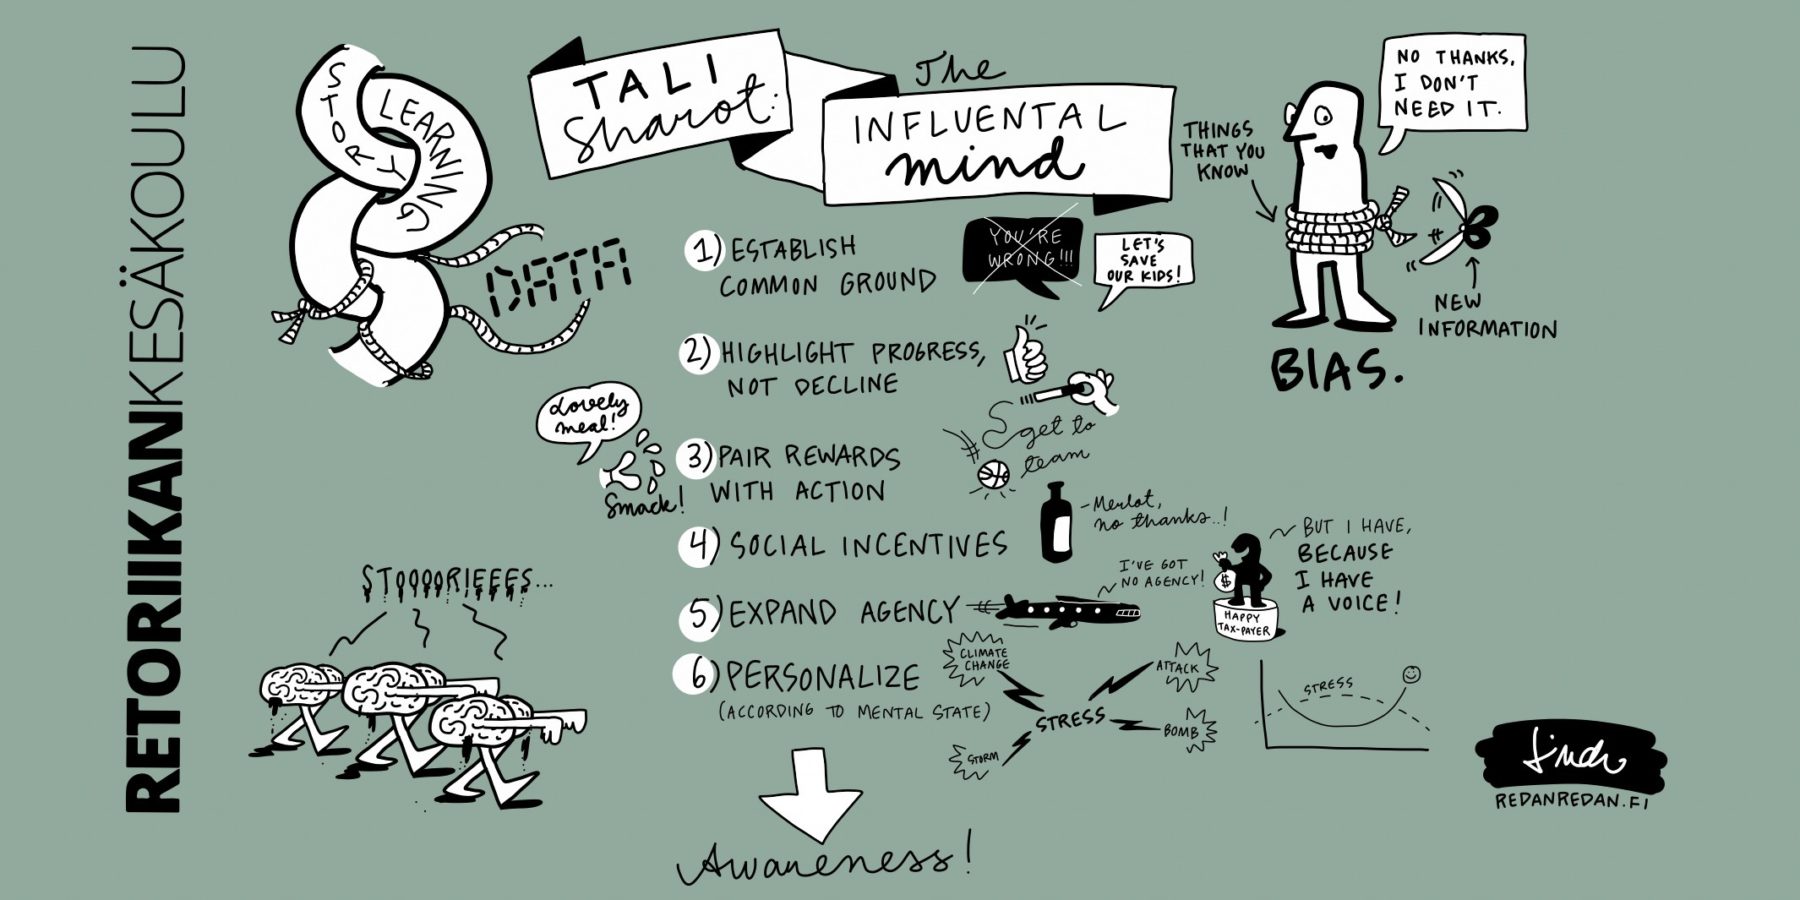 RETORIIKANKESÄKOULU
STORY
LEARNING
DATA
TALI
Sharot:
The
INFLUENTAL
mind
THINGS
THAT YOU
KNOW
NO THANKS,
I DON'T
NEED IT.
NEW
INFORMATION
BIAS.
1) ESTABLISH
COMMON GROUND
YOU'RE
WRONG!!!
LET'S
SAVE
OUR KIDS!
2) HIGHLIGHT PROGRESS,
NOT DECLINE
Lovely
meal!
Smack!
3) PAIR REWARDS
WITH ACTION
get to
team
4) SOCIAL INCENTIVES
-Merlot,
no thanks..!
5) EXPAND AGENCY
I'VE GOT
NO AGENCY!
BUT I HAVE,
BECAUSE
I HAVE
A VOICE!
$
HAPPY
TAX-PAYER
6) PERSONALIZE
(ACCORDING TO MENTAL STATE)
CLIMATE
CHANGE
ATTACK
STRESS
BOMB
STORM
STRESS
STOOOORIEEEES...
Awareness!
REDANREDAN.FI